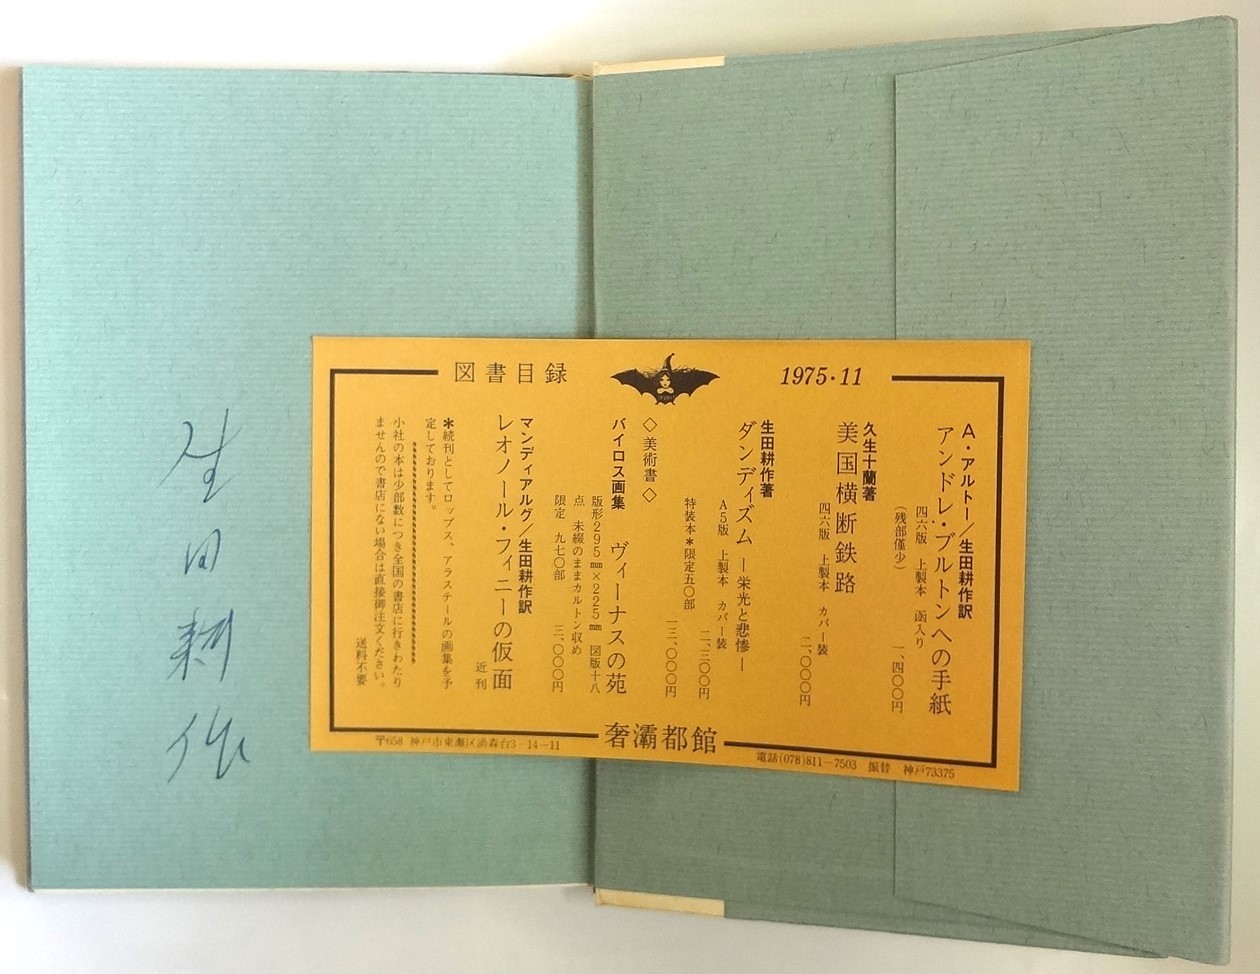 生田耕作
図書目録
1975・11
A・アルトー/生田耕作訳
アンドレ・ブルトンへの手紙
四六版 上製本 函入り
(残部僅少) 一、四〇〇円
久生十蘭著
美国横断鉄路
四六版 上製本 カバー装
二、〇〇〇円
生田耕作著
ダンディズム ―栄光と悲惨―
A5版 上製本 カバー装
二、三〇〇円
特装本*限定五〇部 一三、〇〇〇円
◇美術書◇
バイロス画集 ヴィーナスの苑
版形295㎜×225㎜ 図版十八
点 未綴のままカルトン収め
限定 九七〇部 三、〇〇〇円
マンディアルグ/生田耕作訳
レオノール・フィニーの仮面
近刊
*続刊としてロップス、アラステールの画集を予
定しております。
小社の本は少部数につき全国の書店に行きわたり
ませんので書店にない場合は直接御注文ください。
送料不要
奢灞都館
〒658 神戸市東灘区渦森台3-14-11
電話(078)811-7503 振替 神戸73375